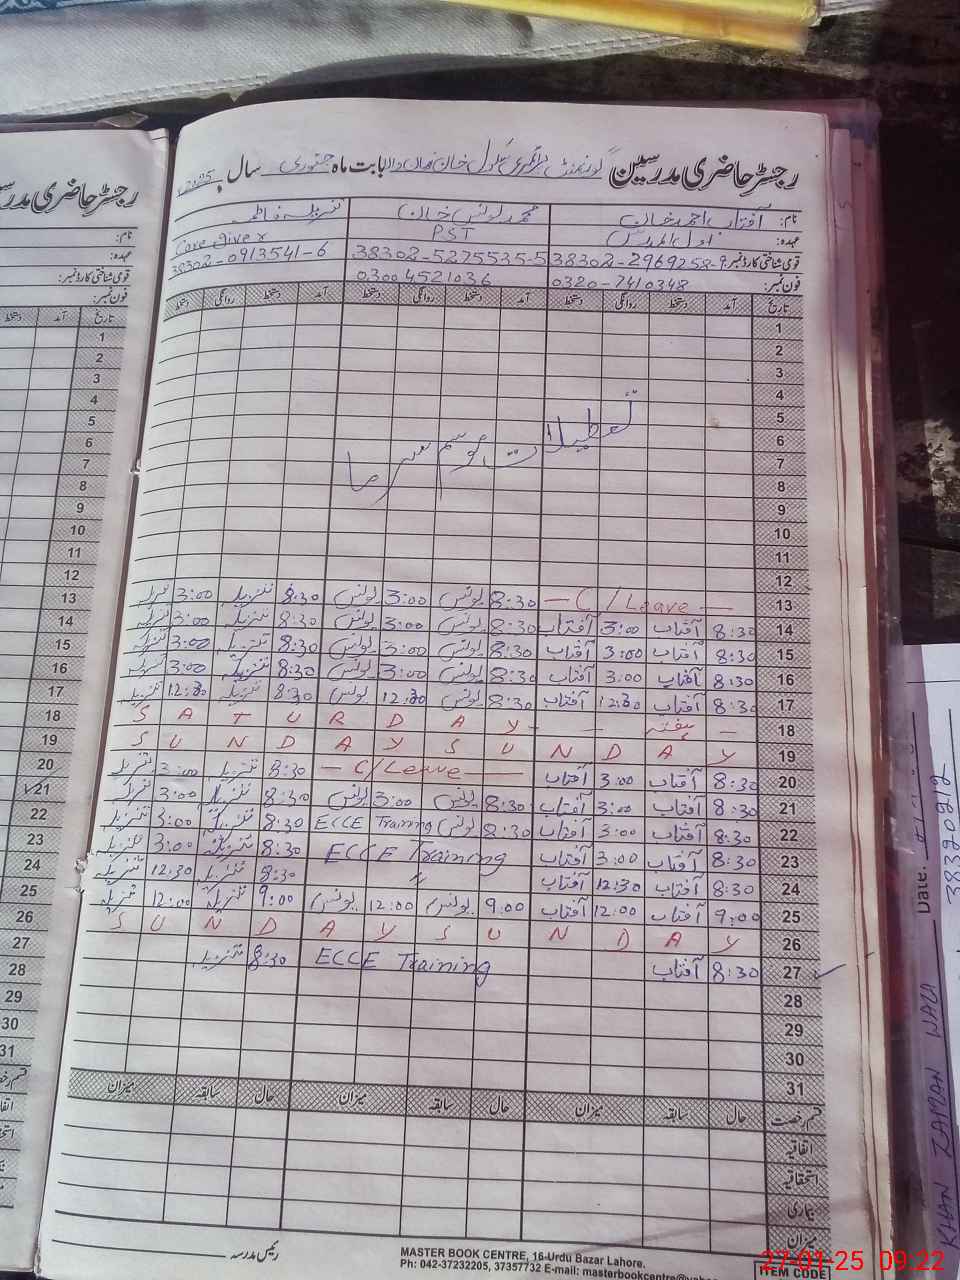 رجسٹر حاضری مدرسین گورنمنٹ پرائمری سکول خان بابت ماہ جنوری سال 2025ء
نام: آفتاب احمد خان محمد یونس خان تنزیلہ فاطمہ
عہدہ: اول مدرس PST Care Giver
قومی شناختی کارڈ نمبر: 38302-2969258-9 38302-5275535-5 38302-0913541-6
فون نمبر: 0320-7410348 0300 4521036
تاریخ آمد دستخط روانگی دستخط آمد دستخط روانگی دستخط آمد دستخط روانگی دستخط
1
2
3
4
5
6
7
8
9
10
11
12
تعطیلات موسم سرما
13 — C/Leave — 8:30 یونس 3:00 یونس 8:30 تنزیلہ 3:00 تنزیلہ
14 8:30 آفتاب 3:00 آفتاب 8:30 یونس 3:00 یونس 8:30 تنزیلہ 3:00 تنزیلہ
15 8:30 آفتاب 3:00 آفتاب 8:30 یونس 3:00 یونس 8:30 تنزیلہ 3:00 تنزیلہ
16 8:30 آفتاب 3:00 آفتاب 8:30 یونس 3:00 یونس 8:30 تنزیلہ 3:00 تنزیلہ
17 8:30 آفتاب 12:30 آفتاب 8:30 یونس 12:30 یونس 8:30 تنزیلہ 12:30 تنزیلہ
18 S A T U R D A Y - - ہفتہ -
19 S U N D A Y S U N D A Y
20 8:30 آفتاب 3:00 آفتاب — C/Leave — 8:30 تنزیلہ 3:00 تنزیلہ
21 8:30 آفتاب 3:00 آفتاب 8:30 یونس 3:00 یونس 8:30 تنزیلہ 3:00 تنزیلہ
22 8:30 آفتاب 3:00 آفتاب 8:30 یونس ECCE Training 8:30 تنزیلہ 3:00 تنزیلہ
23 8:30 آفتاب 3:00 آفتاب ECCE Training 8:30 تنزیلہ 3:00 تنزیلہ
24 8:30 آفتاب 12:30 آفتاب 〃 8:30 تنزیلہ 12:30 تنزیلہ
25 9:00 آفتاب 12:00 آفتاب 9:00 یونس 12:00 یونس 9:00 تنزیلہ 12:00 تنزیلہ
26 S U N D A Y S U N D A Y
27 8:30 آفتاب ECCE Training 8:30 تنزیلہ
28
29
30
31
قسم رخصت حال سابقہ میزان حال سابقہ میزان حال سابقہ میزان
اتفاقیہ
استحقاقیہ
بیماری
میزان
رئیس مدرسہ
MASTER BOOK CENTRE, 16-Urdu Bazar Lahore.
Ph: 042-37232205, 37357732 E-mail: masterbookcentre@yahoo
ITEM CODE
27-01-25 09:22
رجسٹر حاضری مدرسین
نام:
عہدہ:
قومی شناختی کارڈ نمبر:
فون نمبر:
تاریخ آمد دستخط
1
2
3
4
5
6
7
8
9
10
11
12
13
14
15
16
17
18
19
20
21
22
23
24
25
26
27
28
29
30
31
Date:
38320212
KHAN ZAMAN